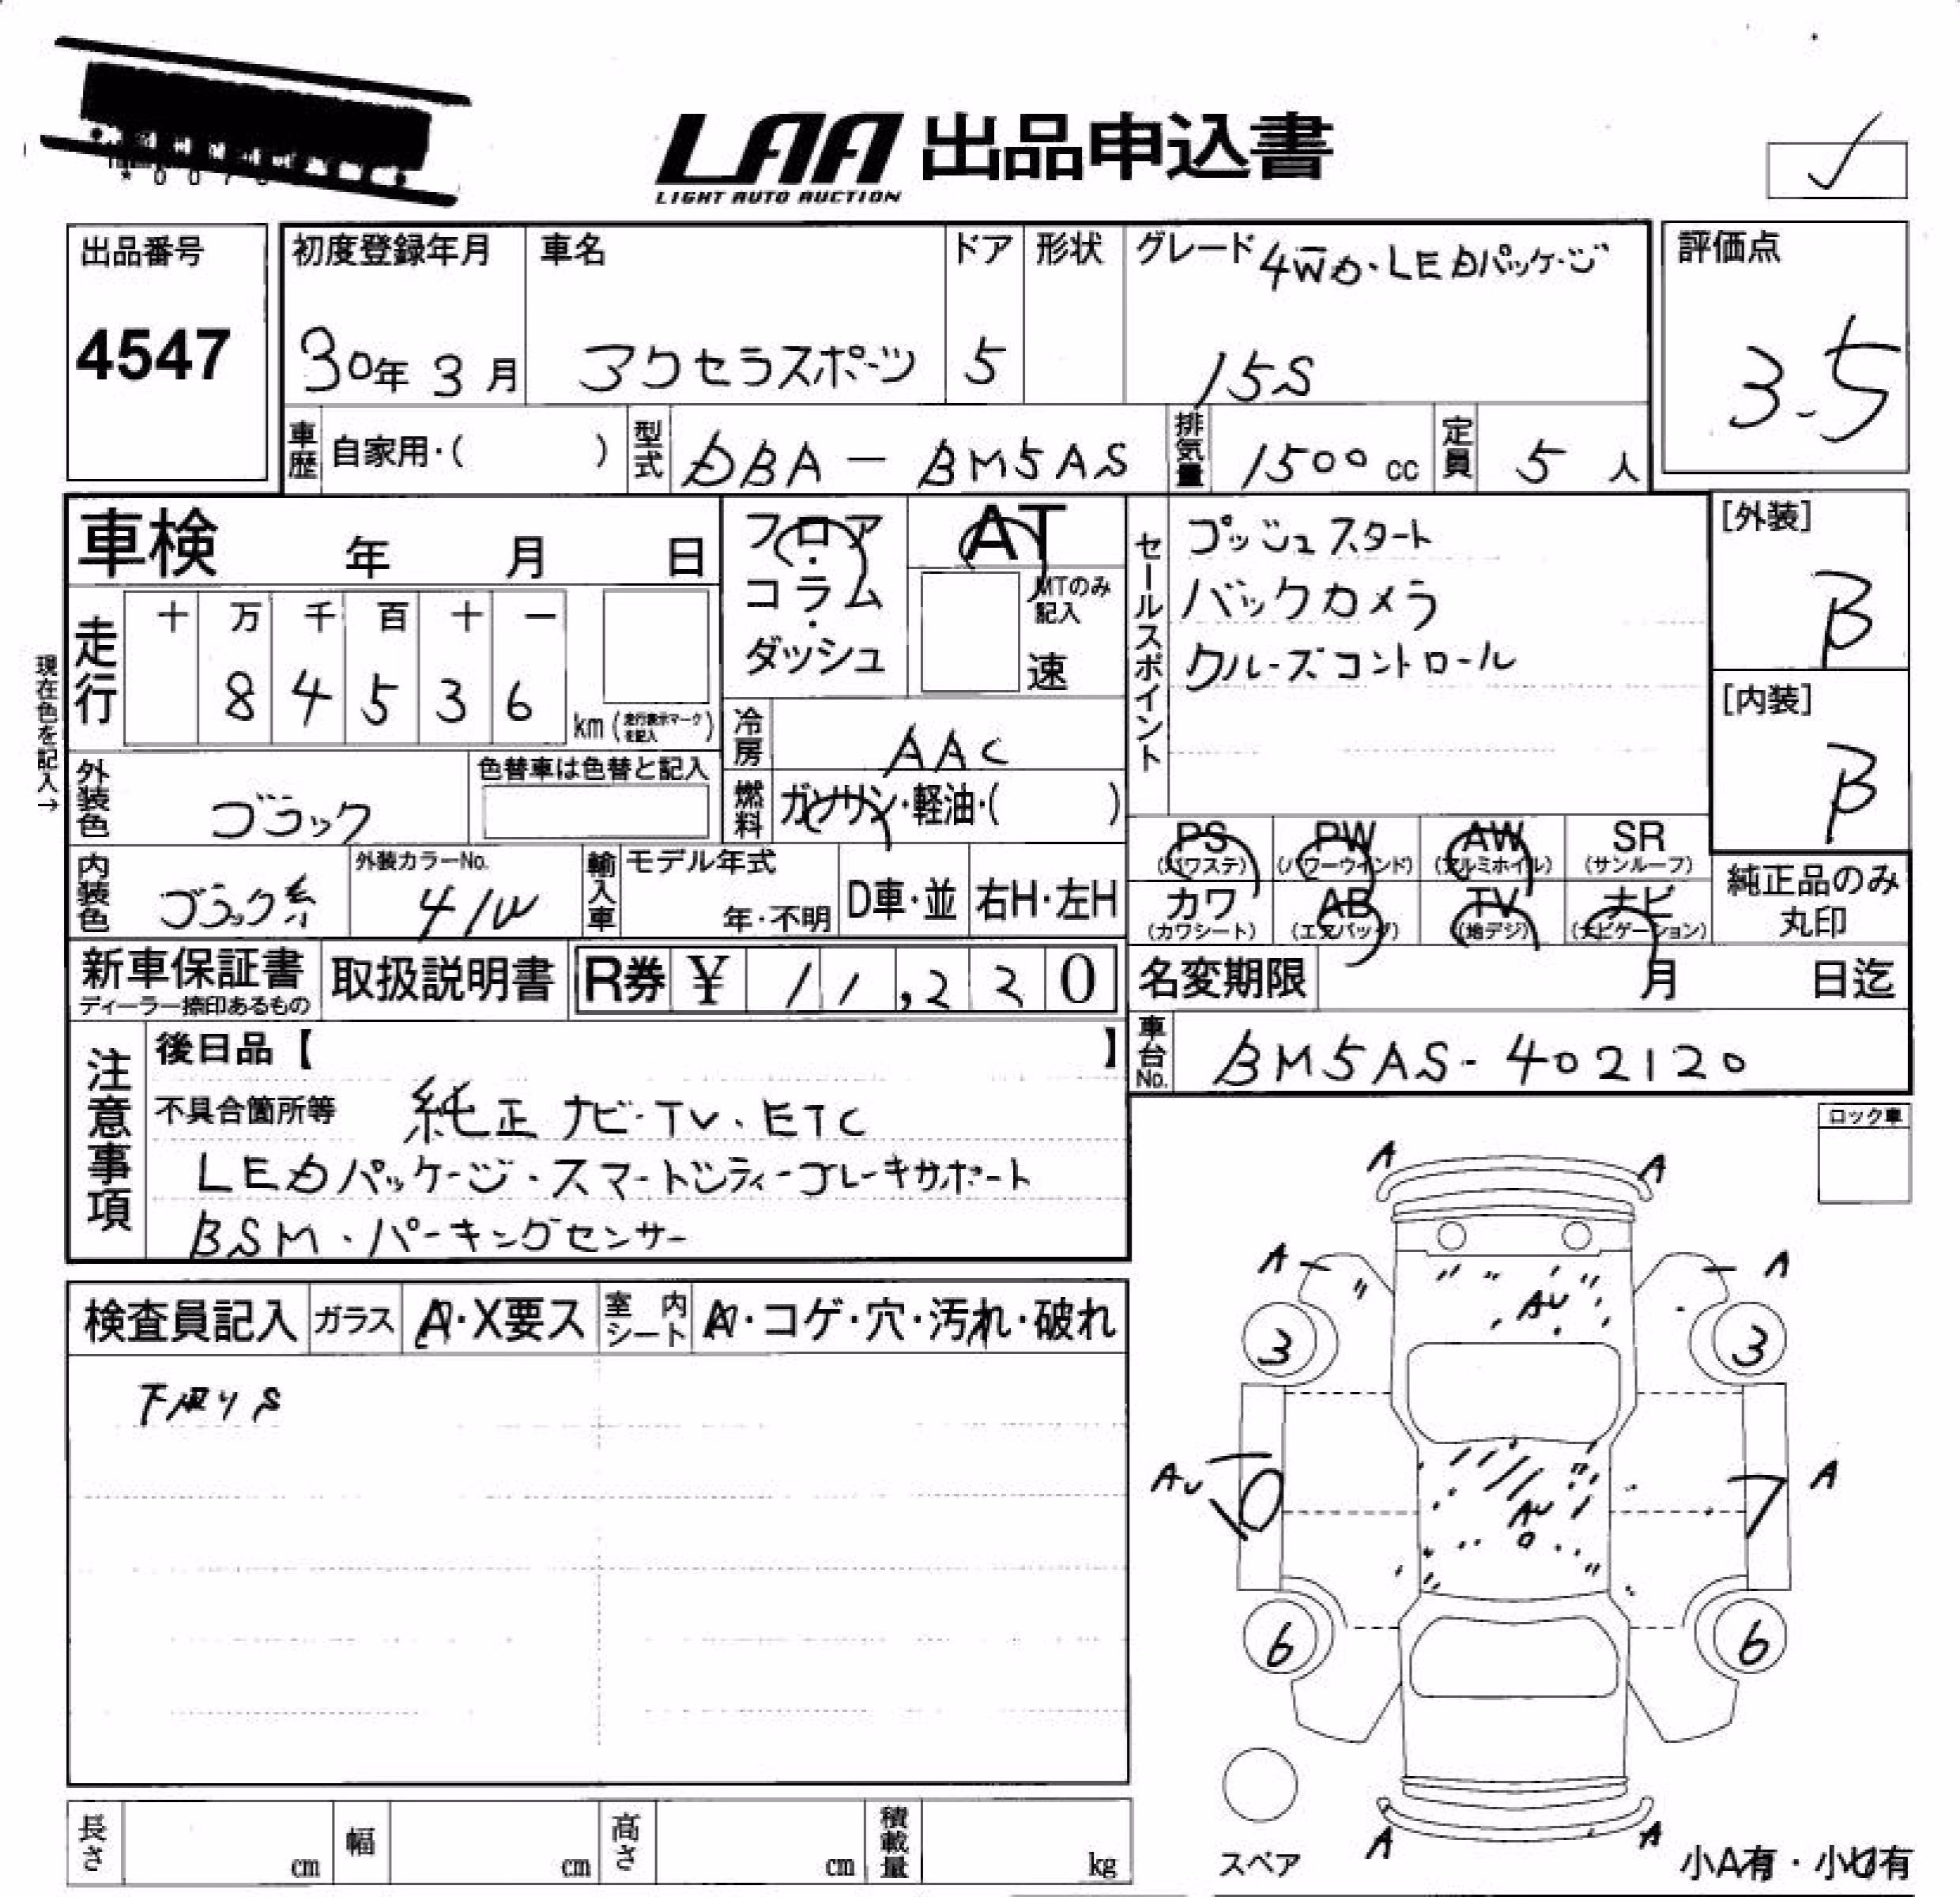 LAA 出品申込書
LIGHT AUTO AUCTION
出品番号
4547
初度登録年月
30年 3月
車名
アクセラスポーツ
ドア
5
形状
グレード 4WD・LEDパッケージ
15S
評価点
3.5
車歴 自家用・( )
型式 DBA － BM5AS
排気量 1500 cc
定員 5 人
車検 年 月 日
フロア・コラム・ダッシュ
AT
MTのみ記入
速
セールスポイント
プッシュスタート
バックカメラ
クルーズコントロール
[外装]
B
[内装]
B
現在色を記入→
走行
十 万 千 百 十 一
8 4 5 3 6
km (走行表示マークを記入)
冷房 AAC
燃料 ガソリン・軽油・( )
外装色 ブラック
色替車は色替と記入
内装色 ブラック系
外装カラーNo.
41W
輸入車
モデル年式
年・不明
D車・並
右H・左H
PS (パワステ)
PW (パワーウインド)
AW (アルミホイル)
SR (サンルーフ)
カワ (カワシート)
AB (エアバッグ)
TV (地デジ)
ナビ (ナビゲーション)
純正品のみ丸印
新車保証書
ディーラー捺印あるもの
取扱説明書
R券 ¥ 11,220
名変期限 月 日迄
車台No. BM5AS-402120
注意事項
後日品【 】
不具合箇所等 純正ナビ・TV・ETC
LEDパッケージ・スマートシティーブレーキサポート
BSM・パーキングセンサー
ロック車
検査員記入
ガラス A・X要ス
室内シート A・コゲ・穴・汚れ・破れ
下廻りS
A A
A A
AU
3 3
AU 10 7 A
AU
6 6
A A
スペア
小A有・小U有
長さ cm
幅 cm
高さ cm
積載量 kg